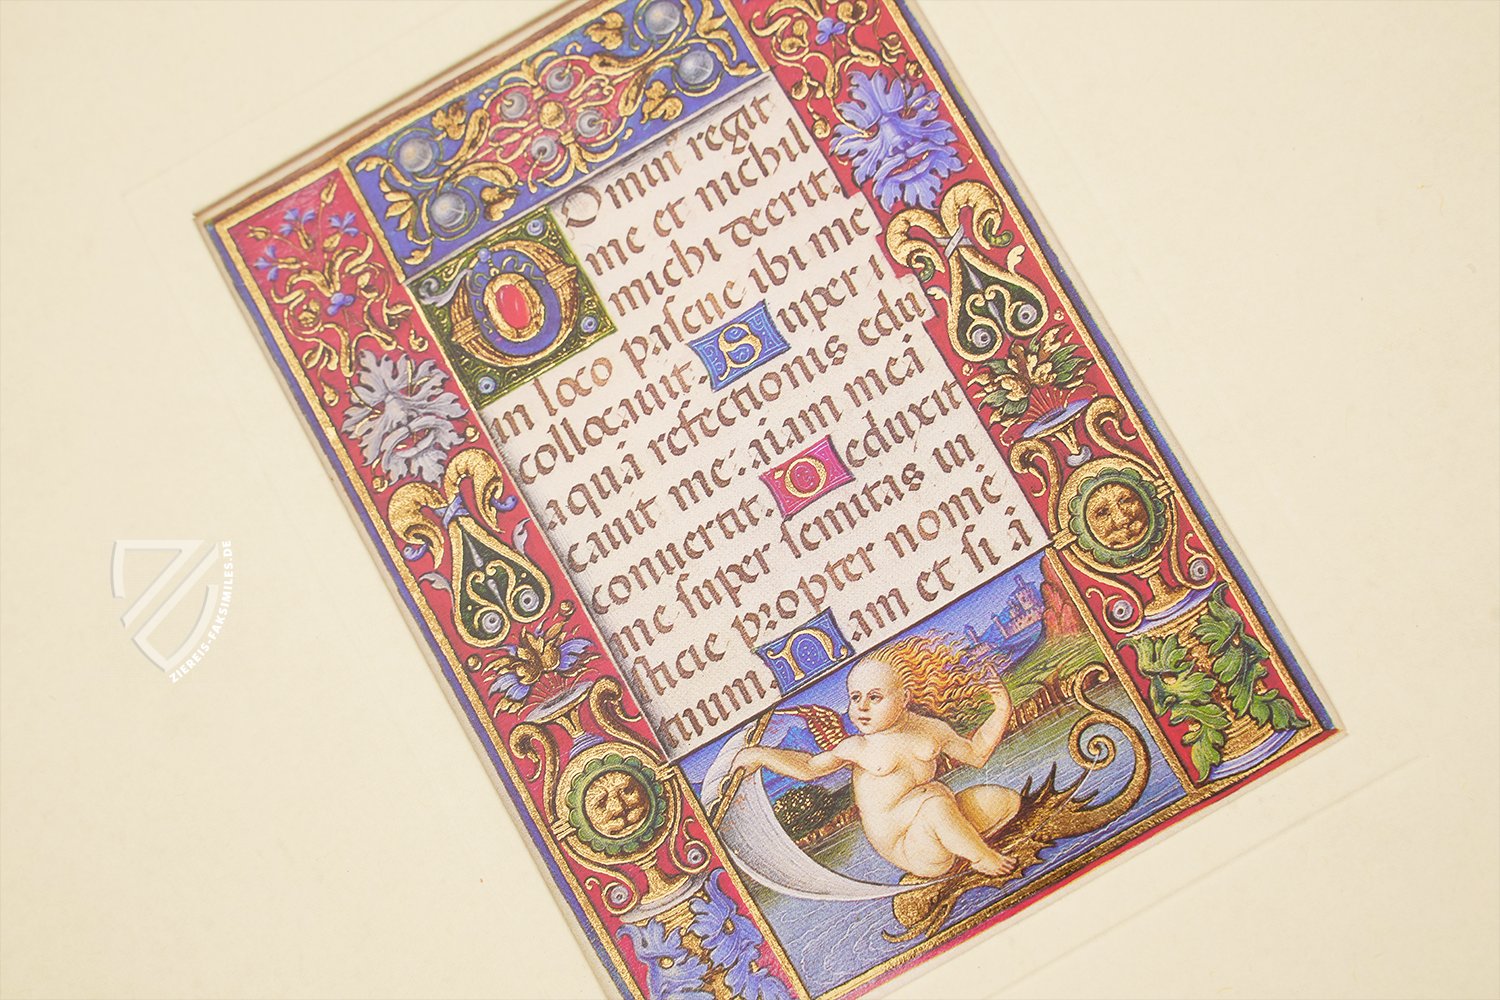 Omini regit
me et nichil
michi deerit.
in loco pascue ibi me
collocauit. Super i
aqua refectionis edu
cauit me: aiam meā
conuertit. Deduxit
me super semitas in
sticie propter nomē
tuum. Nam et si ā
ZIEREIS-FAKSIMILES.DE